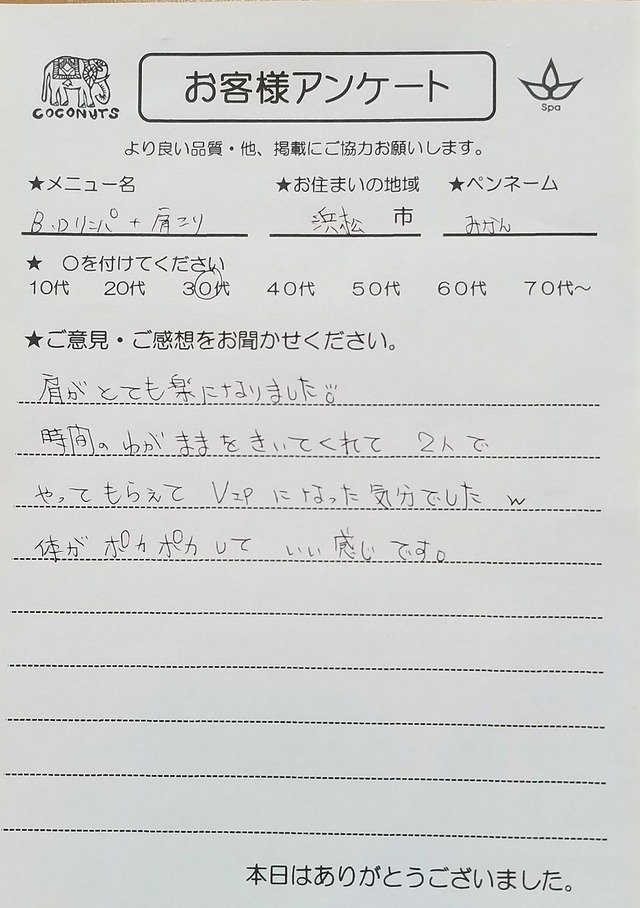 COCONUTS
お客様アンケート
Spa
より良い品質・他、掲載にご協力お願いします。
★メニュー名 ★お住まいの地域 ★ペンネーム
B.Dリンパ + 肩こり 浜松 市 みかん
★ 〇を付けてください
10代 20代 30代 40代 50代 60代 70代～
★ご意見・ご感想をお聞かせください。
肩がとても楽になりました
時間のわがままをきいてくれて 2人で
やってもらえて VIPになった気分でした w
体がポカポカして いい感じです。
本日はありがとうございました。